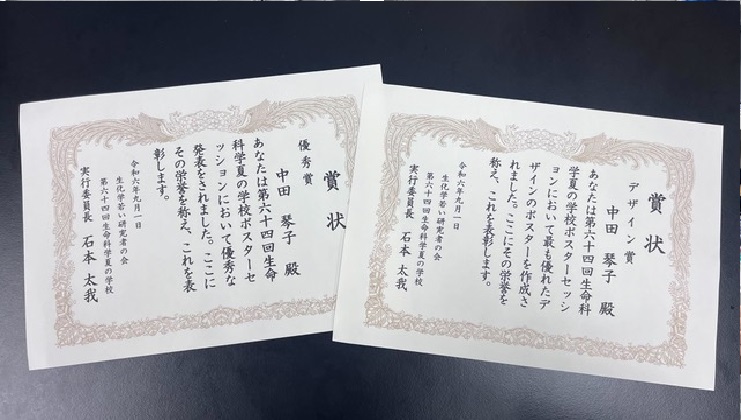 賞状
優秀賞
中田 琴子 殿
あなたは第六十四回生命
科学夏の学校ポスターセ
ッションにおいて優秀な
発表をされました。ここに
その栄誉を称え、これを表
彰します。
令和六年九月一日
生化学若い研究者の会
第六十四回生命科学夏の学校
実行委員長 石本 太我
賞状
デザイン賞
中田 琴子 殿
あなたは第六十四回生命科
学夏の学校ポスターセッシ
ョンにおいて最も優れたデ
ザインのポスターを作成さ
れました。ここにその栄誉を
称え、これを表彰します。
令和六年九月一日
生化学若い研究者の会
第六十四回生命科学夏の学校
実行委員長 石本 太我